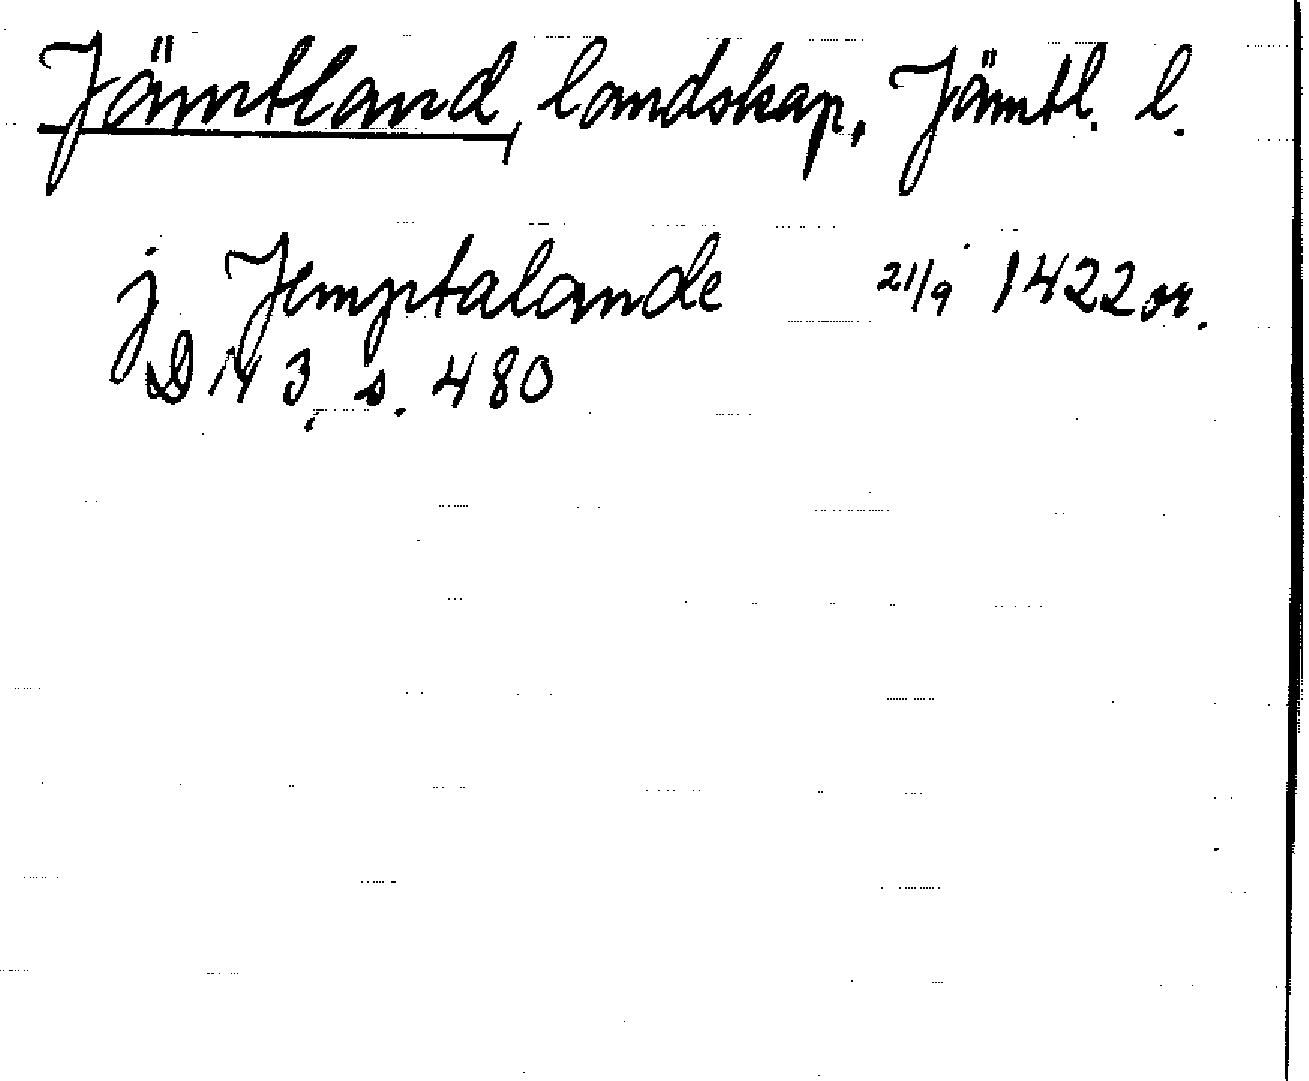 Jämtland, landskap, Jämtl. l.
j Jemptalande 21/9 1422 or.
DN 3, s. 480